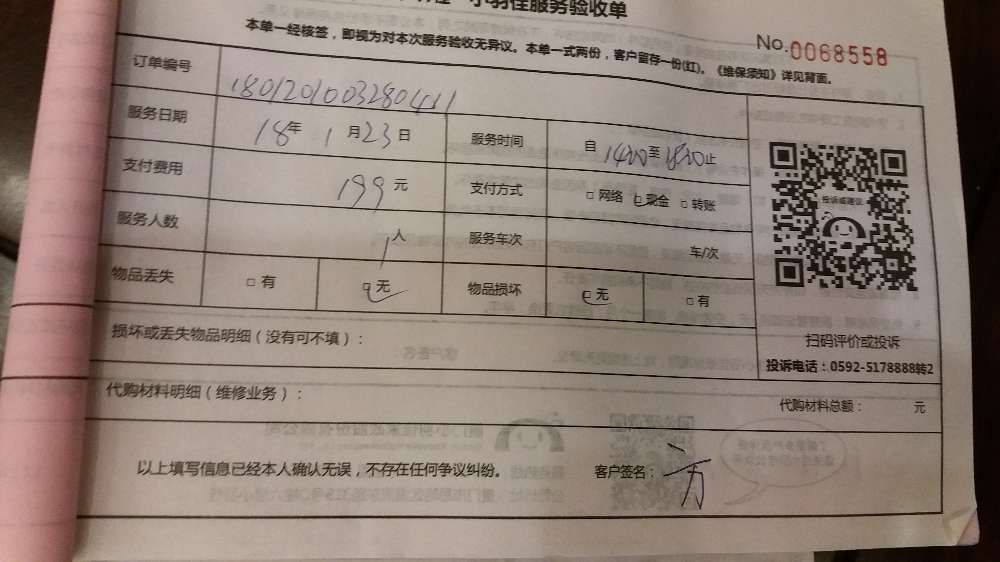 小羽佳服务验收单
本单一经核签，即视为对本次服务验收无异议。本单一式两份，客户留存一份(红)。《维保须知》详见背面。
No.0068558
订单编号 1801201003280411
服务日期 18年1月23日 服务时间 自1420至1820止
支付费用 199元 支付方式 □网络 □现金 □转账
服务人数 1人 服务车次 车/次
物品丢失 □有 □无 物品损坏 □无 □有
投诉或建议
扫码评价或投诉
投诉电话：0592-5178888转2
损坏或丢失物品明细（没有可不填）：
代购材料明细（维修业务）：
代购材料总额： 元
以上填写信息已经本人确认无误，不存在任何争议纠纷。
客户签名：